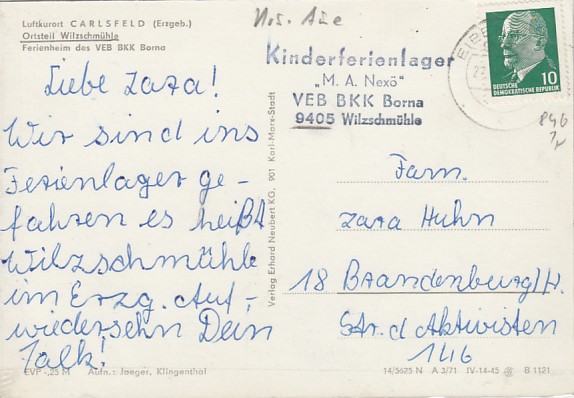 Luftkurort CARLSFELD (Erzgeb.)
Ortsteil Wilzschmühle
Ferienheim des VEB BKK Borna
Kinderferienlager
„M. A. Nexö"
VEB BKK Borna
9405 Wilzschmühle
10
DEUTSCHE
DEMOKRATISCHE REPUBLIK
Liebe Zaza!
Wir sind ins
Ferienlager ge-
fahren es heißt
Wilzschmühle
im Erzg. Auf-
wiedersehn Dein
Falk!
Verlag Erhard Neubert KG, 901 Karl-Marx-Stadt
Fam.
Zaza Huhn
18 Brandenburg/H.
Str. d Aktivisten
14b
EVP -,25 M Aufn.: Jaeger, Klingenthal
14/5625 N A 3/71 IV-14-45 B 1121